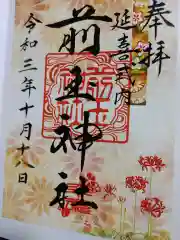 奉拝
延喜式内
前玉神社
令和三年十月十八日